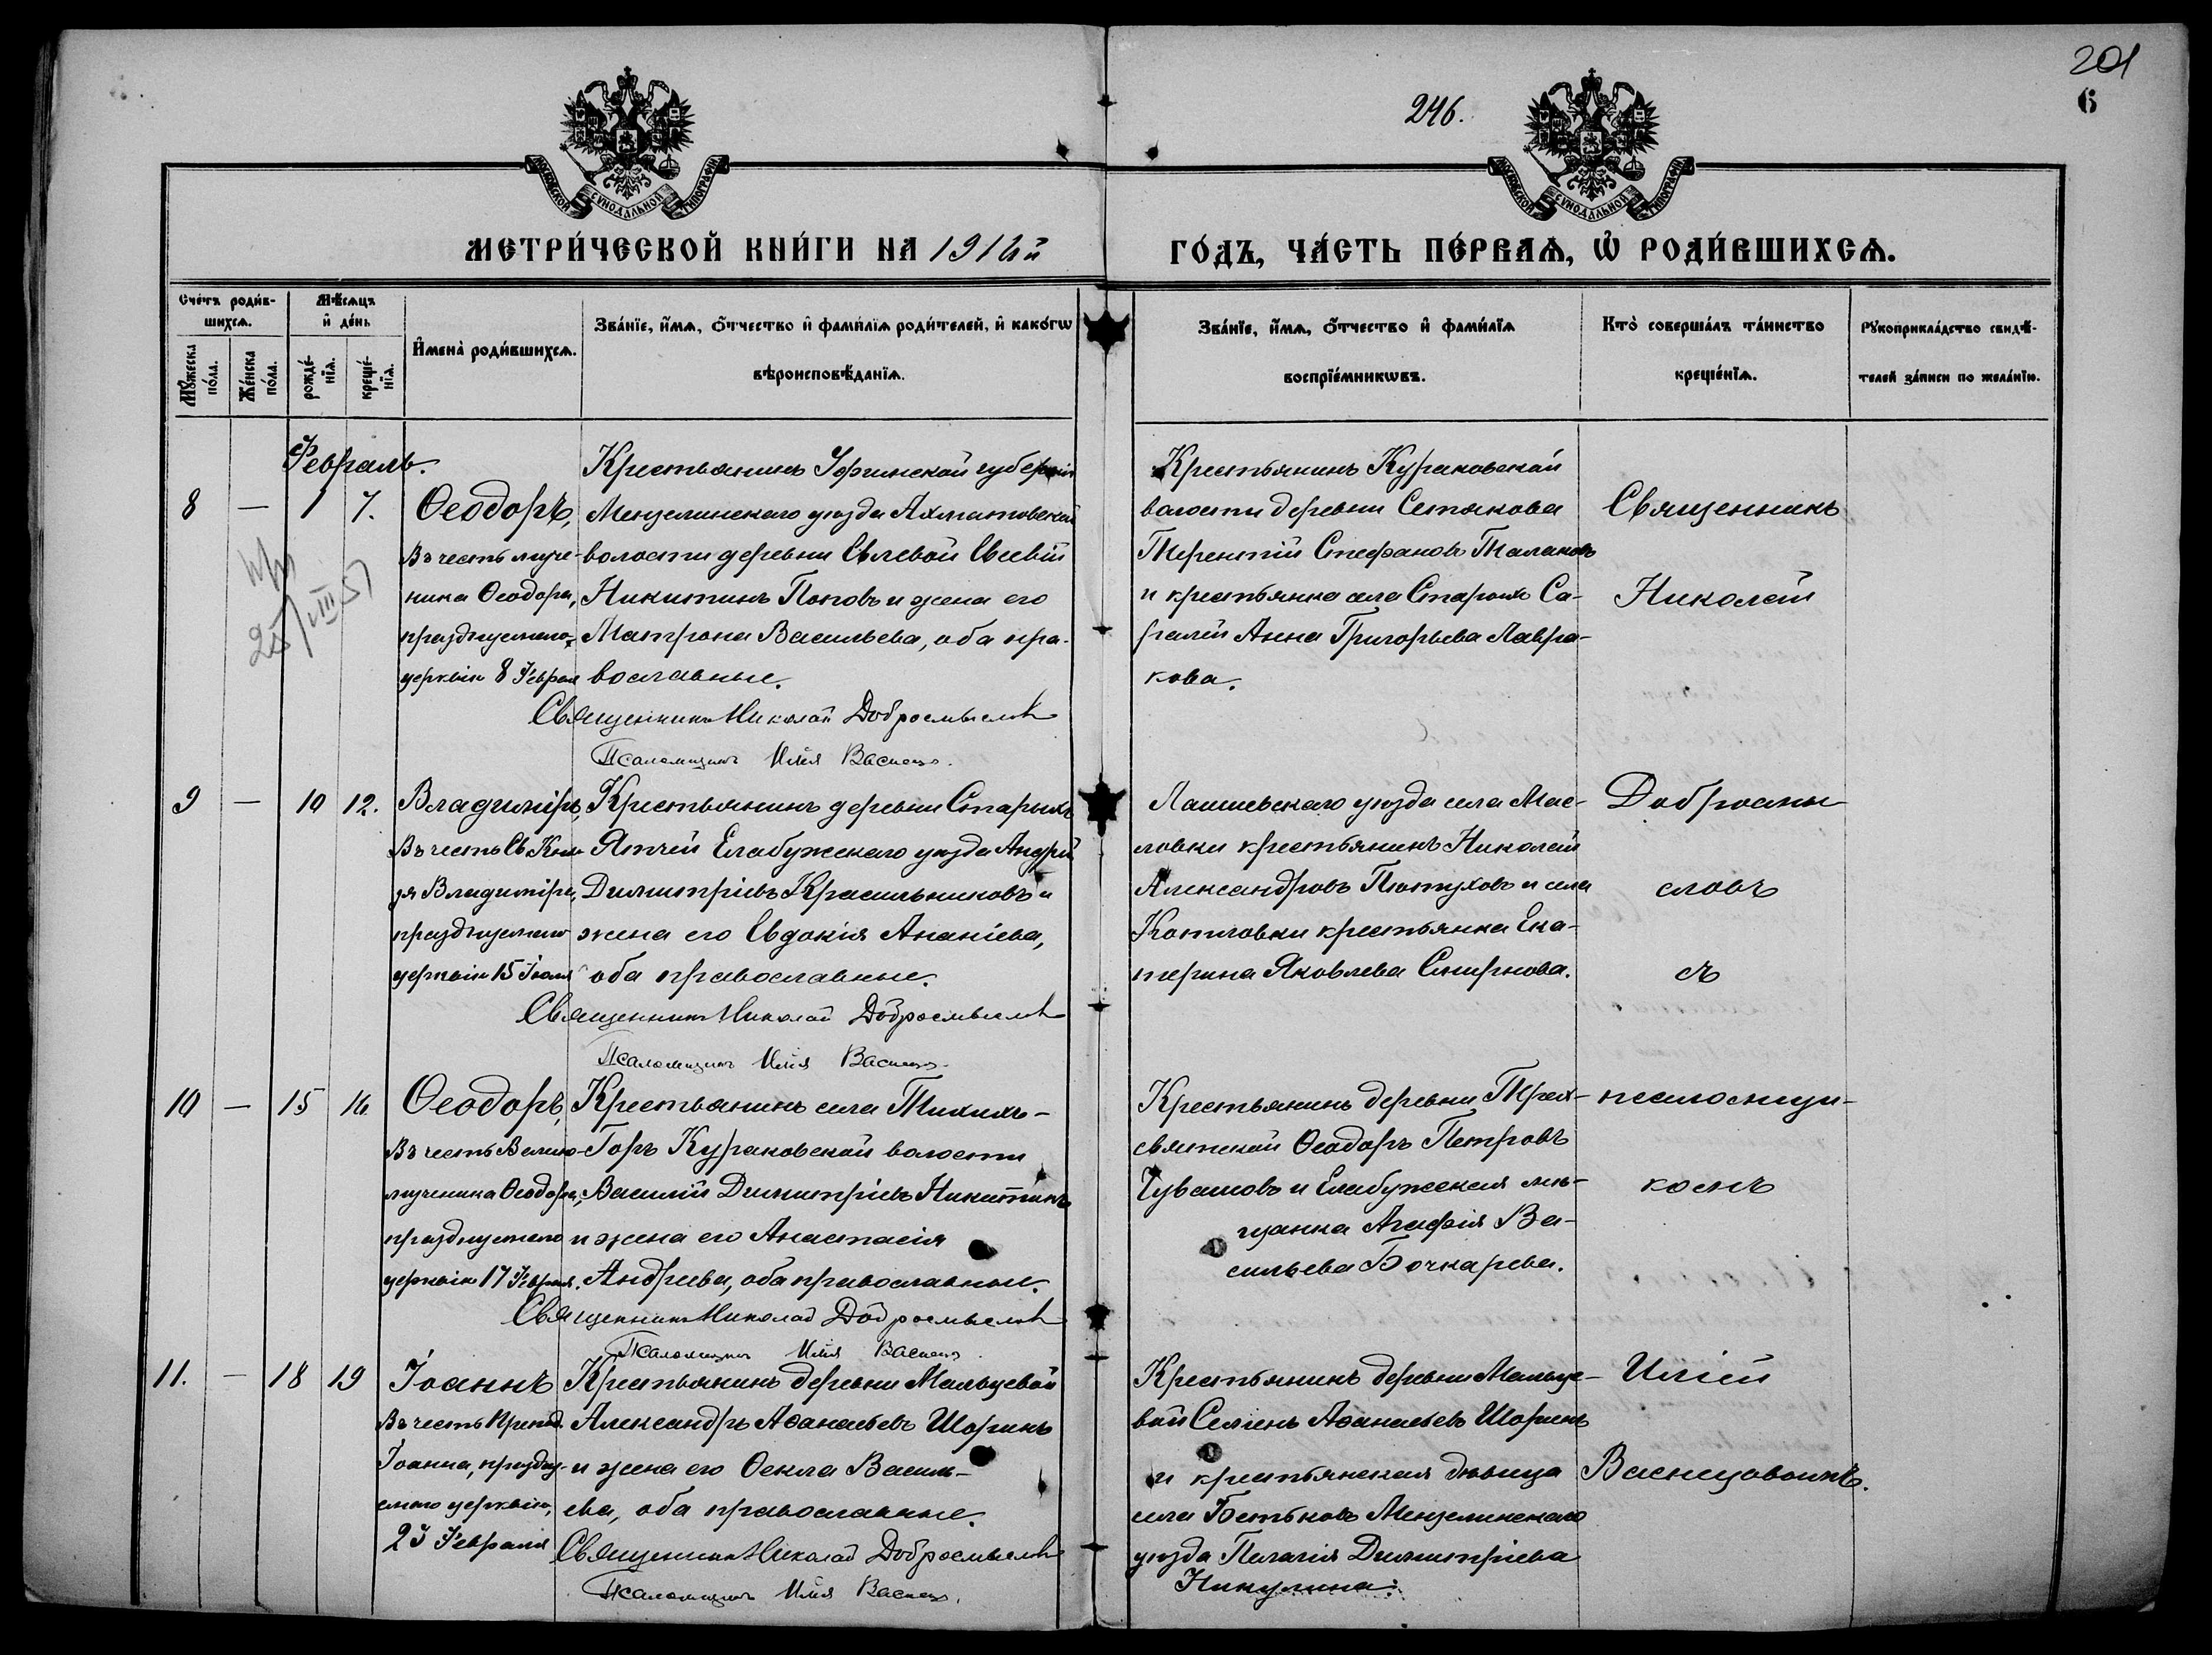 201
6
246.
МОСКОВСКОЙ СѴНОДАЛЬНОЙ ТИПОГРАФІИ
МОСКОВСКОЙ СѴНОДАЛЬНОЙ ТИПОГРАФІИ
МЕТРИ́ЧЕСКОЙ КНИ́ГИ НА 1912й
ГО́ДЪ, ЧА́СТЬ ПЕ́РВАѦ, Ѡ҆ РОДИ́ВШИХСѦ.
Сче́тъ роди́в-
шихсѧ.
Мѣ́сѧцъ
и҆ де́нь
Мꙋ́жеска
по́ла.
Же́нска
по́ла.
рожде́-
нїѧ.
креще́-
нїѧ.
И҆мена̀ роди́вшихсѧ.
Зва́нїе, и҆́мѧ, ѻ҆́тчество и҆ фами́лїѧ роди́телей, и҆ како́гѡ
вѣроисповѣ́данїѧ.
Зва́нїе, и҆́мѧ, ѻ҆́тчество и҆ фами́лїѧ
воспрїе́мникѡвъ.
Кто̀ соверша́лъ та́инство
креще́нїѧ.
Рꙋкоприкла́дство свидѣ́-
телей за́писи по жела́нїю.
Февраль.
8 — 1 7.
Ѳеодоръ,
Въ честь муче-
ника Ѳеодора,
празднуемаго
церковію 8 Февраля
Крестьянинъ Уфимской губерніи
Мензелинскаго уѣзда Ахметовской
волости деревни Евлевой Евсевій
Никитинъ Поповъ и жена его
Матрона Васильева, оба пра-
вославные.
Священникъ Николай Добросмысловъ
Псаломщикъ Илія Васнецовъ.
Крестьянинъ Кураковской
волости деревни Сетякова
Терентій Стефановъ Талановъ
и крестьянка села Старыхъ Са-
ралей Анна Григорьева Лавра-
кова.
Священникъ
Николай
9 — 10 12.
Владиміръ,
Въ честь Св. Кня-
зя Владиміра,
празднуемаго
церковію 15 Іюля
Крестьянинъ деревни Старыхъ
Ятчей Елабужскаго уѣзда Андрей
Димитріевъ Красильниковъ и
жена его Евдокія Ананіева,
оба православные.
Священникъ Николай Добросмысловъ
Псаломщикъ Илія Васнецовъ.
Лаишевскаго уѣзда села Мас-
ловки крестьянинъ Николай
Александровъ Пѣтуховъ и села
Котловки крестьянка Ека-
терина Яковлева Смирнова.
Добросмы
словъ
съ
10 — 15 16
Ѳеодоръ,
Въ честь Велико-
мученика Ѳеодора,
празднуемаго
церковію 17 Февраля.
Крестьянинъ села Тихихъ-
Горъ Кураковской волости
Василій Димитріевъ Никитинъ
и жена его Анастасія
Андреева, оба православные.
Священникъ Николай Добросмысловъ
Псаломщикъ Илія Васнецовъ.
Крестьянинъ деревни Трех-
святской Ѳеодоръ Петровъ
Чувашовъ и Елабужская мѣ-
щанка Агафія Ва-
сильева Бочкарева.
псаломщи-
комъ
11. — 18 19
Іоаннъ
Въ честь Препод.
Іоанна, праздну-
емаго церковію,
23 Февраля
Крестьянинъ деревни Мальцевой
Александръ Аѳанасьевъ Шоринъ
и жена его Ѳекла Василь-
ева, оба православные.
Священникъ Николай Добросмысловъ
Псаломщикъ Илія Васнецовъ.
Крестьянинъ деревни Мальце-
вой Семенъ Аѳанасьевъ Шоринъ
и крестьянская дѣвица
села Бетьковъ Мензелинскаго
уѣзда Пелагія Димитріева
Никулина.
Иліей
Васнецовымъ.